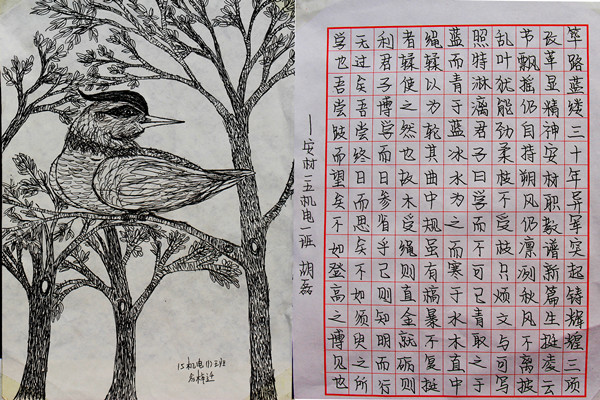 筚路蓝缕三十年异军突起铸辉煌三项
孜革显精神安材职教谱新篇生挺凌云
节飘摇仍自持朔风仍凛冽秋风不离披
乱叶犹能劲柔枝不受枝只烦文与可写
照特淋漓君子曰学而不可已青取之于
蓝而青于蓝冰水为之而寒于水木直中
绳鞣以为轮其曲中规虽有槁暴不复挺
者鞣使之然也故木受绳则直金就砺则
利君子博学而日参省乎己则知明而行
无过矣吾尝终日而思矣不如须臾之所
学也吾尝跂而望矣不如登高之博见也
一安材一五机电一班 胡磊
15机电(1)班